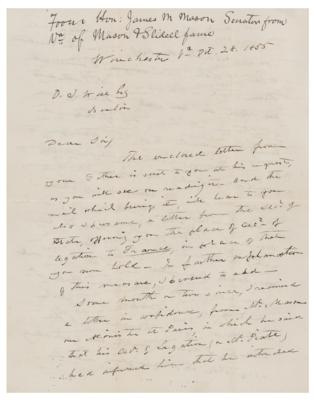 From Hon: James M Mason Senator from
Va of Mason & Slidell fame
Winchester Va Oct. 28. 1855
O. J. Wise Esq
Berlin
Dear Sir
The enclosed letter from
your Father is sent to you at his request,
as you will see on reading it and the
mail which brings it, will bear to you
also I presume, a letter from the Sec: of
State, offering you the place of Sec: of
legation to France, in place of that
you now hold — In further explanation
of this measure, I proceed to add —
Some month or two since, I received
a letter in confidence, from Mr. Mason
our Minister at Paris, in which he said
that his Sec: of legation, Mr. Piatt,
had informed him that he intended